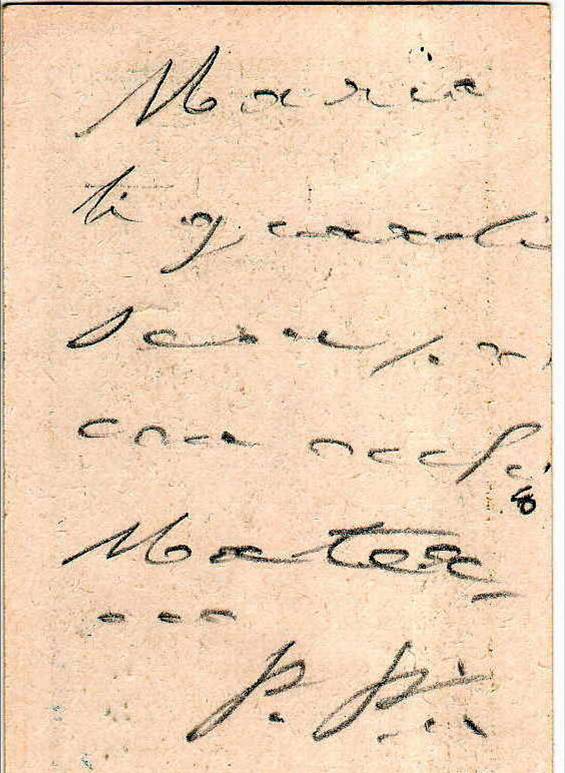 Maria
ti guardi
sempre
con occhio
Mater-
no
P. Pio